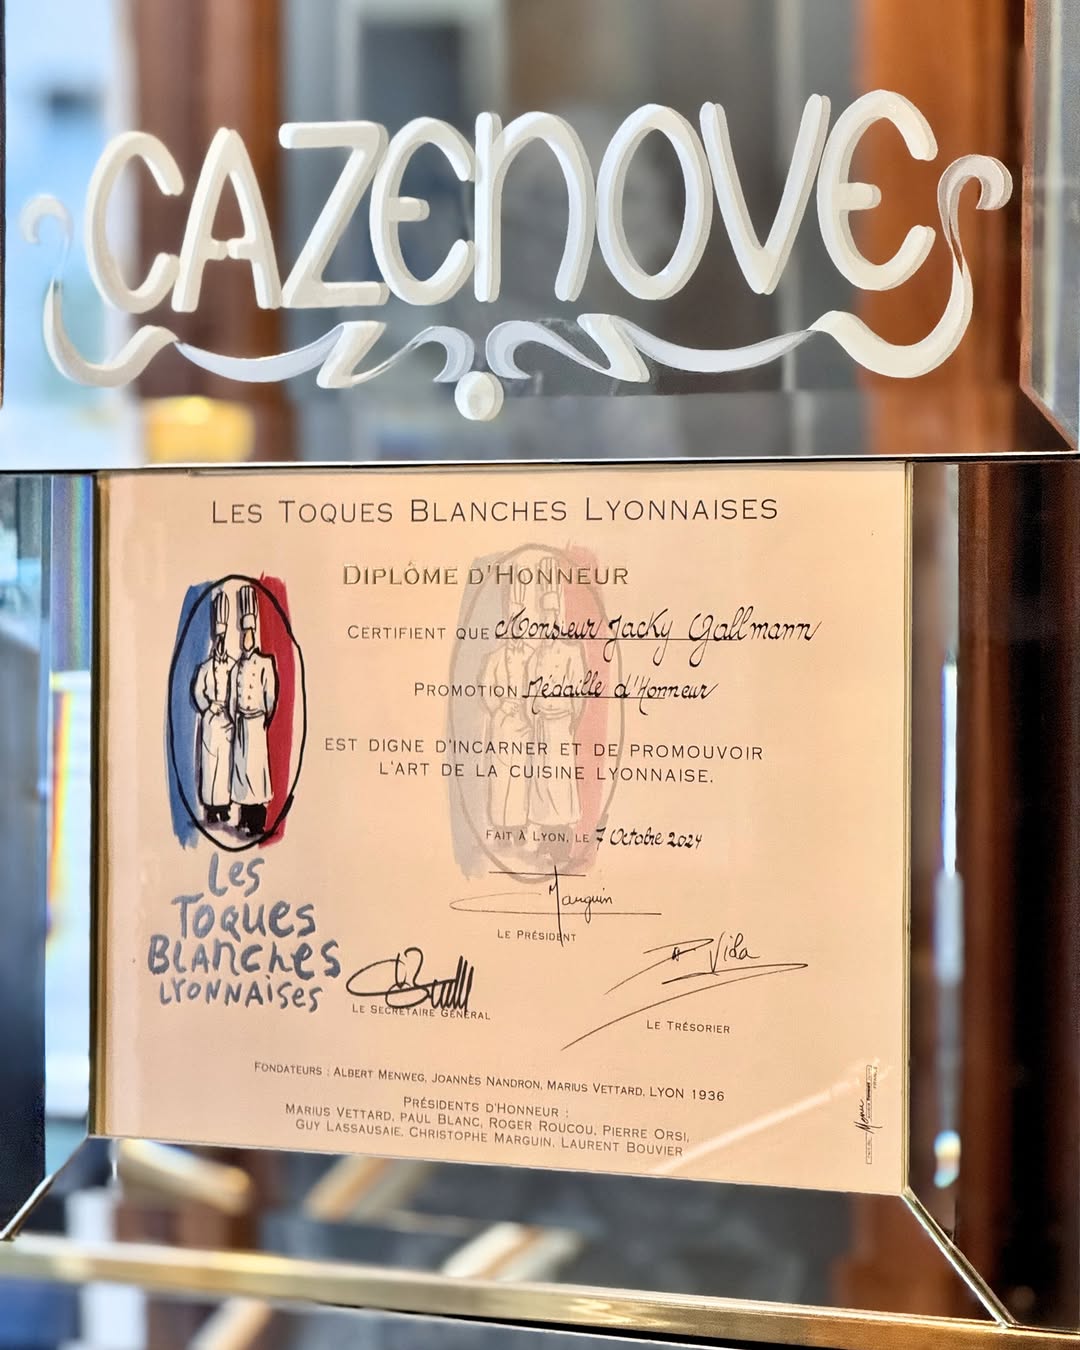 CAZENOVE
LES TOQUES BLANCHES LYONNAISES
DIPLÔME D'HONNEUR
CERTIFIENT QUE Monsieur Jacky Gallmann
PROMOTION Médaille d'Honneur
EST DIGNE D'INCARNER ET DE PROMOUVOIR
L'ART DE LA CUISINE LYONNAISE.
FAIT À LYON, LE 7 Octobre 2024
Les
Toques
Blanches
Lyonnaises
Marguin
LE PRÉSIDENT
LE SECRÉTAIRE GÉNÉRAL
Vida
LE TRÉSORIER
FONDATEURS : ALBERT MENWEG, JOANNÈS NANDRON, MARIUS VETTARD, LYON 1936
PRÉSIDENTS D'HONNEUR :
MARIUS VETTARD, PAUL BLANC, ROGER ROUCOU, PIERRE ORSI,
GUY LASSAUSAIE, CHRISTOPHE MARGUIN, LAURENT BOUVIER